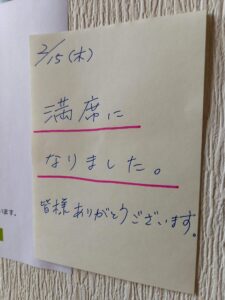 2/15(木)
満席に
なりました。
皆様ありがとうございます。
います。